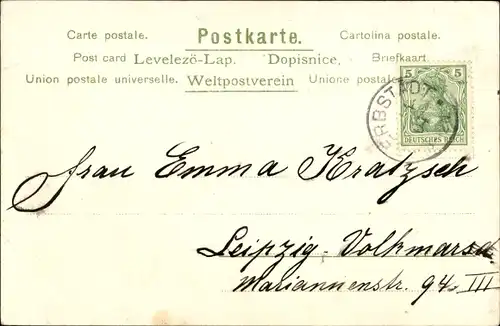 Carte postale. Postkarte. Cartolina postale.
Post card Levelezö-Lap. Dopisnice, Briefkaart.
Union postale universelle. Weltpostverein Unione postale
5 5
DEUTSCHES REICH
ERBSTADT
Frau Emma Kratzsch
Leipzig-Volkmarsd.
Mariannenstr. 94 III